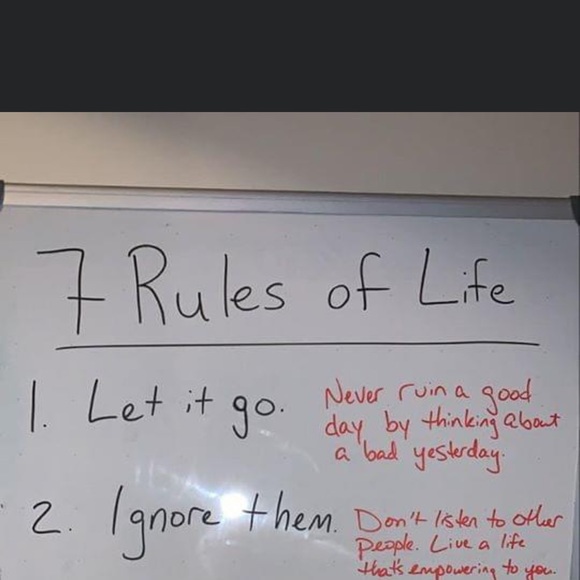 7 Rules of Life
1. Let it go.
Never ruin a good
day by thinking about
a bad yesterday.
2. Ignore them.
Don't listen to other
people. Live a life
that's empowering to you.